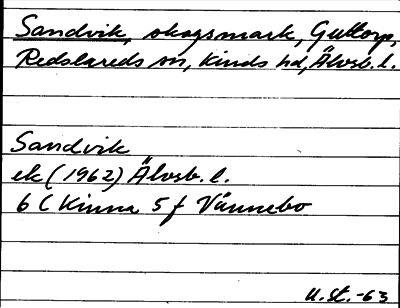 Sandvik, skogsmark, Guttorp,
Redslareds sn, Kinds hd, Älvsb. l.
Sandvik
ek (1962) Älvsb. l.
6 C Kinna 5 f Vännebo
U.St. -63